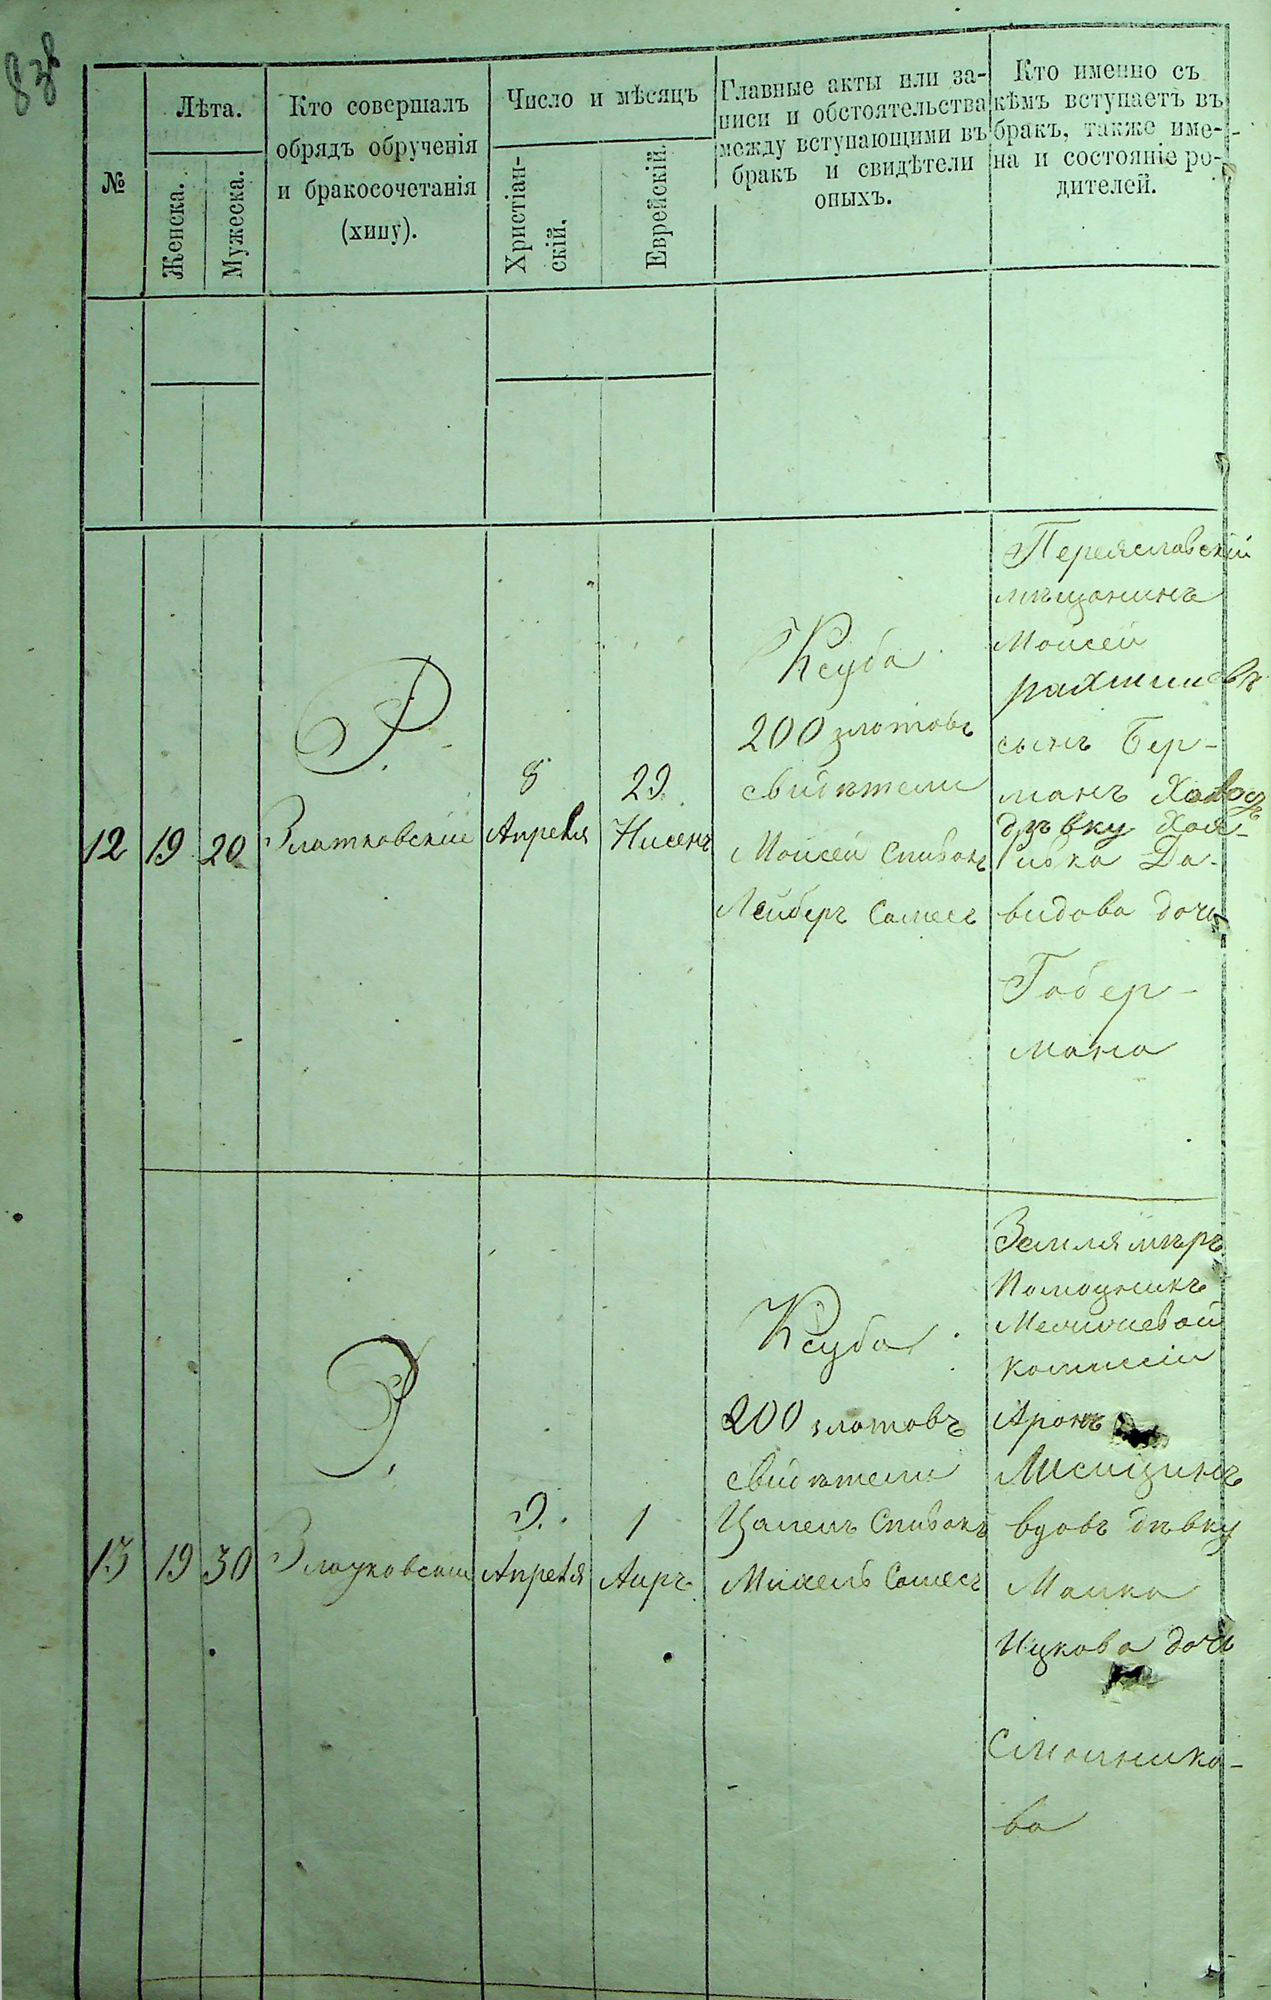 №
Лѣта.
Женска.
Мужеска.
Кто совершалъ
обрядъ обрученія
и бракосочетанія
(хипу).
Число и мѣсяцъ
Христіан-
скій.
Еврейскій.
Главные акты или за-
писи и обстоятельства
между вступающими въ
бракъ и свидѣтели
оныхъ.
Кто именно съ
кѣмъ вступаетъ въ
бракъ, также име-
на и состояніе ро-
дителей.
12
19
20
Р.
Златковскій
8
Апреля
29
Нисенъ
Ксуба
200 злотовъ
свидѣтели
Моисей Спивакъ
Лейберъ Самесъ
Переяславскій
мѣщанинъ
Моисей
сынъ Бер-
манъ
дѣвку Хая-
Ривка Да-
видова дочь
Габер-
мана
13
19
30
Р.
Златковскій
9.
Апреля
1
Аиръ
Ксуба
200 злотовъ
свидѣтели
Спивакъ
Михель Самесъ
Землямѣръ
Помощникъ
Комиссіи
Аронъ
Лисицинъ
вдовъ дѣвку
Малка
Ицкова дочь
Смольнико-
ва